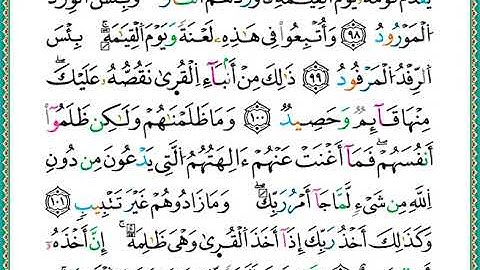 يَقْدُمُ قَوْمَهُۥ يَوْمَ ٱلْقِيَـٰمَةِ فَأَوْرَدَهُمُ ٱلنَّارَ ۖ وَبِئْسَ ٱلْوِرْدُ
ٱلْمَوْرُودُ ﴿٩٨﴾ وَأُتْبِعُوا۟ فِى هَـٰذِهِۦ لَعْنَةً وَيَوْمَ ٱلْقِيَـٰمَةِ ۚ بِئْسَ
ٱلرِّفْدُ ٱلْمَرْفُودُ ﴿٩٩﴾ ذَٰلِكَ مِنْ أَنۢبَآءِ ٱلْقُرَىٰ نَقُصُّهُۥ عَلَيْكَ ۖ
مِنْهَا قَآئِمٌ وَحَصِيدٌ ﴿١٠٠﴾ وَمَا ظَلَمْنَـٰهُمْ وَلَـٰكِن ظَلَمُوٓا۟
أَنفُسَهُمْ ۖ فَمَآ أَغْنَتْ عَنْهُمْ ءَالِهَتُهُمُ ٱلَّتِى يَدْعُونَ مِن دُونِ
ٱللَّهِ مِن شَىْءٍ لَّمَّا جَآءَ أَمْرُ رَبِّكَ ۖ وَمَا زَادُوهُمْ غَيْرَ تَتْبِيبٍ ﴿١٠١﴾
وَكَذَٰلِكَ أَخْذُ رَبِّكَ إِذَآ أَخَذَ ٱلْقُرَىٰ وَهِىَ ظَـٰلِمَةٌ ۚ إِنَّ أَخْذَهُۥٓ